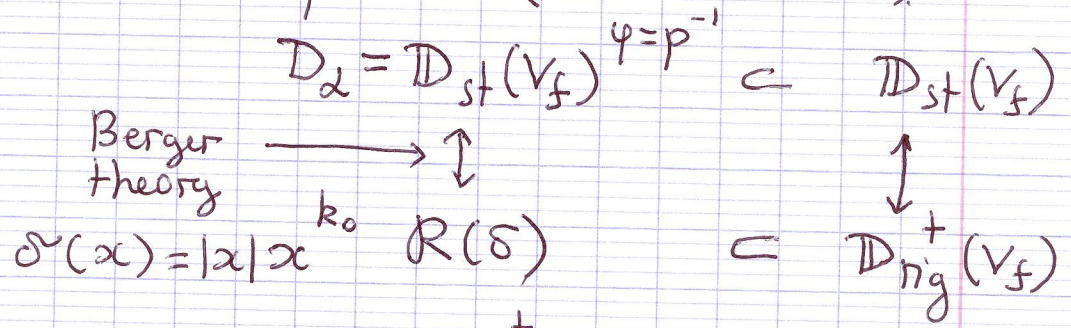 D_α = 𝔻_st(V_f)^{φ=p^{-1}} ⊂ 𝔻_st(V_f)
Berger → ↕ ↕
theory
δ(x) = |x| x^{k_0} R(δ) ⊂ 𝔻^+_rig(V_f)